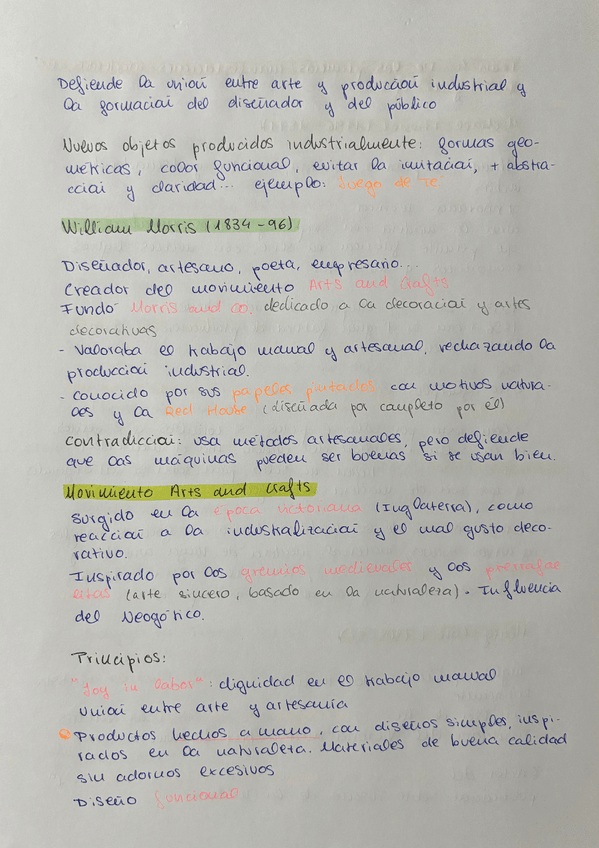 Defiende la unión entre arte y producción industrial y
la formación del diseñador y del público
Nuevos objetos producidos industrialmente: formas geo-
métricas, color funcional, evitar la imitación, + abstra-
cción y claridad... ejemplo: Juego de té
William Morris (1834-96)
Diseñador, artesano, poeta, empresario...
Creador del movimiento Arts and Crafts
Fundó Morris and Co. dedicado a la decoración y artes
decorativas
- Valoraba el trabajo manual y artesanal, rechazando la
producción industrial.
- Conocido por sus papeles pintados con motivos natura-
les y la Red House (diseñada por completo por él)
Contradicción: usa métodos artesanales, pero defiende
que las máquinas pueden ser buenas si se usan bien.
Movimiento Arts and Crafts
Surgido en la época victoriana (Inglaterra), como
reacción a la industralización y el mal gusto deco-
rativo.
Inspirado por los gremios medievales y los prerrafae
litas (arte sincero, basado en la naturaleza). Influencia
del Neogótico.
Principios:
"Joy in labor": dignidad en el trabajo manual
Unión entre arte y artesanía
Productos hechos a mano, con diseños simples, inspi-
rados en la naturaleza. Materiales de buena calidad
sin adornos excesivos
Diseño funcional